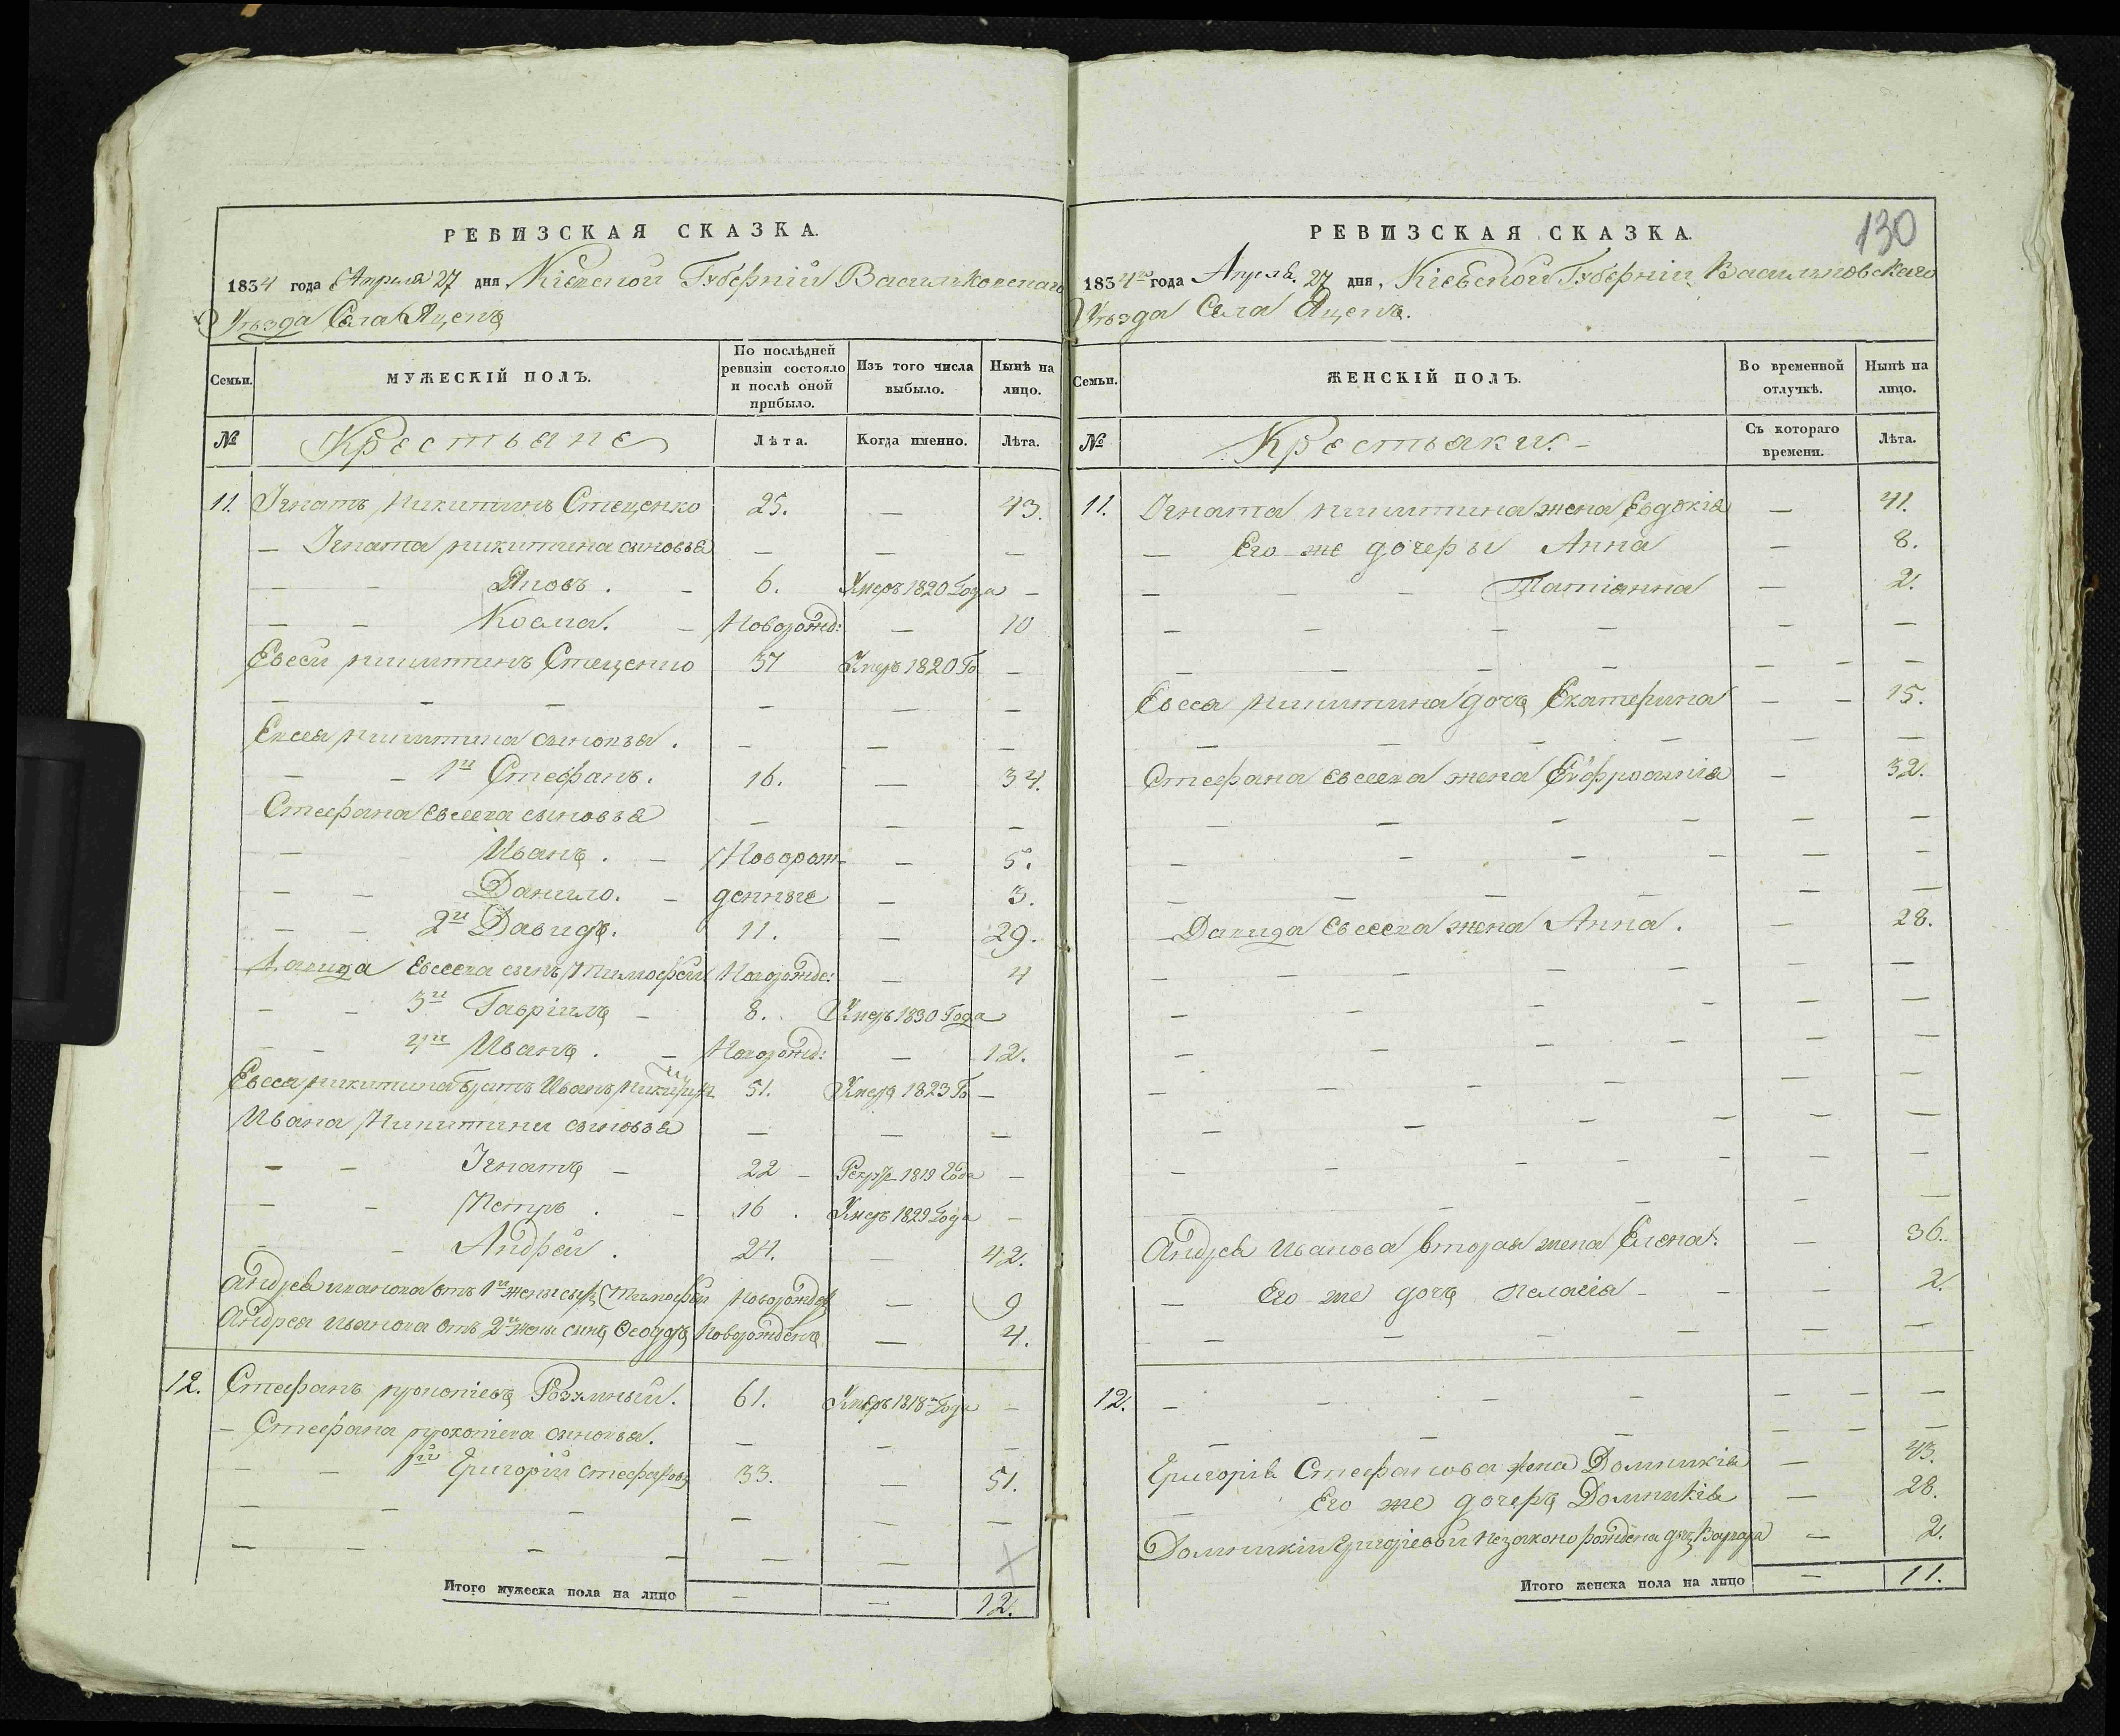 РЕВИЗСКАЯ СКАЗКА.
1834 года Апреля 27 дня Кіевской Губерніи Васильковского
Уѣзда Села Яцекъ
Семьи. МУЖЕСКІЙ ПОЛЪ. По послѣдней ревизіи состояло и послѣ оной прибыло. Изъ того числа выбыло. Нынѣ на лицо.
№ Крестьяне Лѣта. Когда именно. Лѣта.
11. Игнатъ Никитинъ Стеценко 25. — 43.
— Игната никитина сыновья — — —
— — Яковъ. — 6. Умеръ 1820 Года —
— — Косма. — Новорожд: — 10
Евсей никитинъ Стеценко 37 Умеръ 1820 Го —
— — — — — —
Евсея никитина сыновья. — — —
— — 1й Стефанъ. 16. — 34.
Стефана Евсеева сыновья — — —
— Иванъ. — Новорож- — 5.
— — Данило. — денные — 3.
— — 2й Давидъ. 11. — 29.
Давида Евсеева сынъ Тимофей Новорожде: — 4
— — 3й Гавріилъ — 8. Умеръ 1830 Года
— — 4й Иванъ. — Новорожд: — 12.
Евсея никитина братъ Иванъ Никитинъ 51. Умеръ 1823 Го —
Ивана Никитина сыновья — — —
— — Игнатъ — 22 — Рекру: 1819 Года —
— — Петръ. — 16. Умеръ 1829 Года —
— — Андрей. 24. — 42.
Андрея иванова отъ 1й жены сынъ Тимофей Новорожден — 9
Андрея иванова отъ 2й жены сынъ Феодоръ Новорожденъ — 4.
12. Стефанъ прокопіевъ Розумный. 61. Умеръ 1818го Года —
— Стефана прокопіева сыновья. — — —
— — 1й Григорій Стефановъ 33. — 51.
— — — — — —
— — — — — —
Итого мужеска пола на лицо — — 12.
130
РЕВИЗСКАЯ СКАЗКА.
1834го года Апреля 27 дня Кіевской Губерніи Васильковскаго
Уѣзда Села Яцекъ.
Семьи. ЖЕНСКІЙ ПОЛЪ. Во временной отлучкѣ. Нынѣ на лицо.
№ Крестьянки. — Съ котораго времени. Лѣта.
11. Игната никитина жена Евдокія — 41.
— Его же дочеры Анна — 8.
— — — Татіанна — 2.
— — — — — —
— — — — — — —
Евсея Никитина дочъ Екатерина — — 15.
— — — — — —
Стефана Евсеева жена Евфросинія — 32.
— — — — — —
— — — — — —
— — — — — —
Давида Евсеева жена Анна. — 28.
— — — — — —
— — — — — —
— — — — — —
— — — — — —
— — — — — —
— — — — — —
— — — — —
Андрея Иванова вторая жена Елена: — 36.
— Его же дочъ пелагія — — — 2.
— — — — — —
12. — — — — — —
— — — — — —
Григорія Стефанова жена Домникія — 43.
— Его же дочеръ Домникія — 28.
Домникіи Григоріевой незаконо рождена дочъ Варвара — 2.
Итого женска пола на лицо — 11.